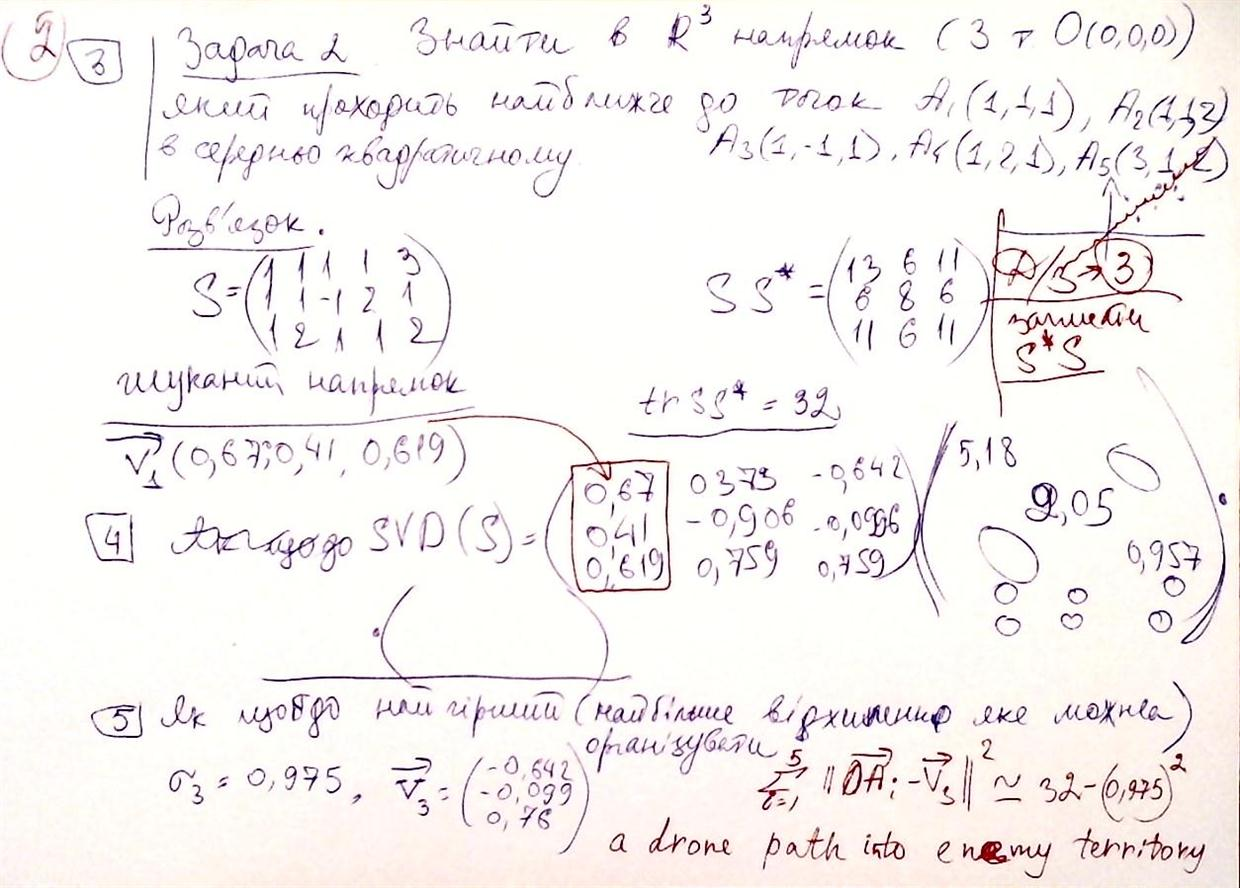 2 3 Задача 2 Знайти в R³ напрямок (З т O(0,0,0))
який проходить найближче до точок A₁(1,1,1), A₂(1,1,2)
в середньо квадратичному. A₃(1,-1,1), A₄(1,2,1), A₅(3,1,2)
Розв'язок.
S = (1 1 1 1 3
1 1 -1 2 1
1 2 1 1 2)
SS* = (13 6 11
6 8 6
11 6 11)
D/З → 3
запишіть
S*S
шуканий напрямок
tr SS* = 32
V₁ (0,67; 0,41, 0,619)
4 Як щодо SVD(S) = (0,67 0373 -0,642
0,41 -0,906 -0,0996
0,619 0,759 0,759)
(5,18
2,05
0,957
0 0 0
0 0 0) ·
· ( )
5 Як щодо найгірший (найбільше відхилення яке можна
організувати)
σ₃ = 0,975, V₃ = (-0,642
-0,099
0,76)
5 Σ i=1 ‖OAᵢ - V₃‖² ≃ 32-(0,975)²
a drone path into enemy territory